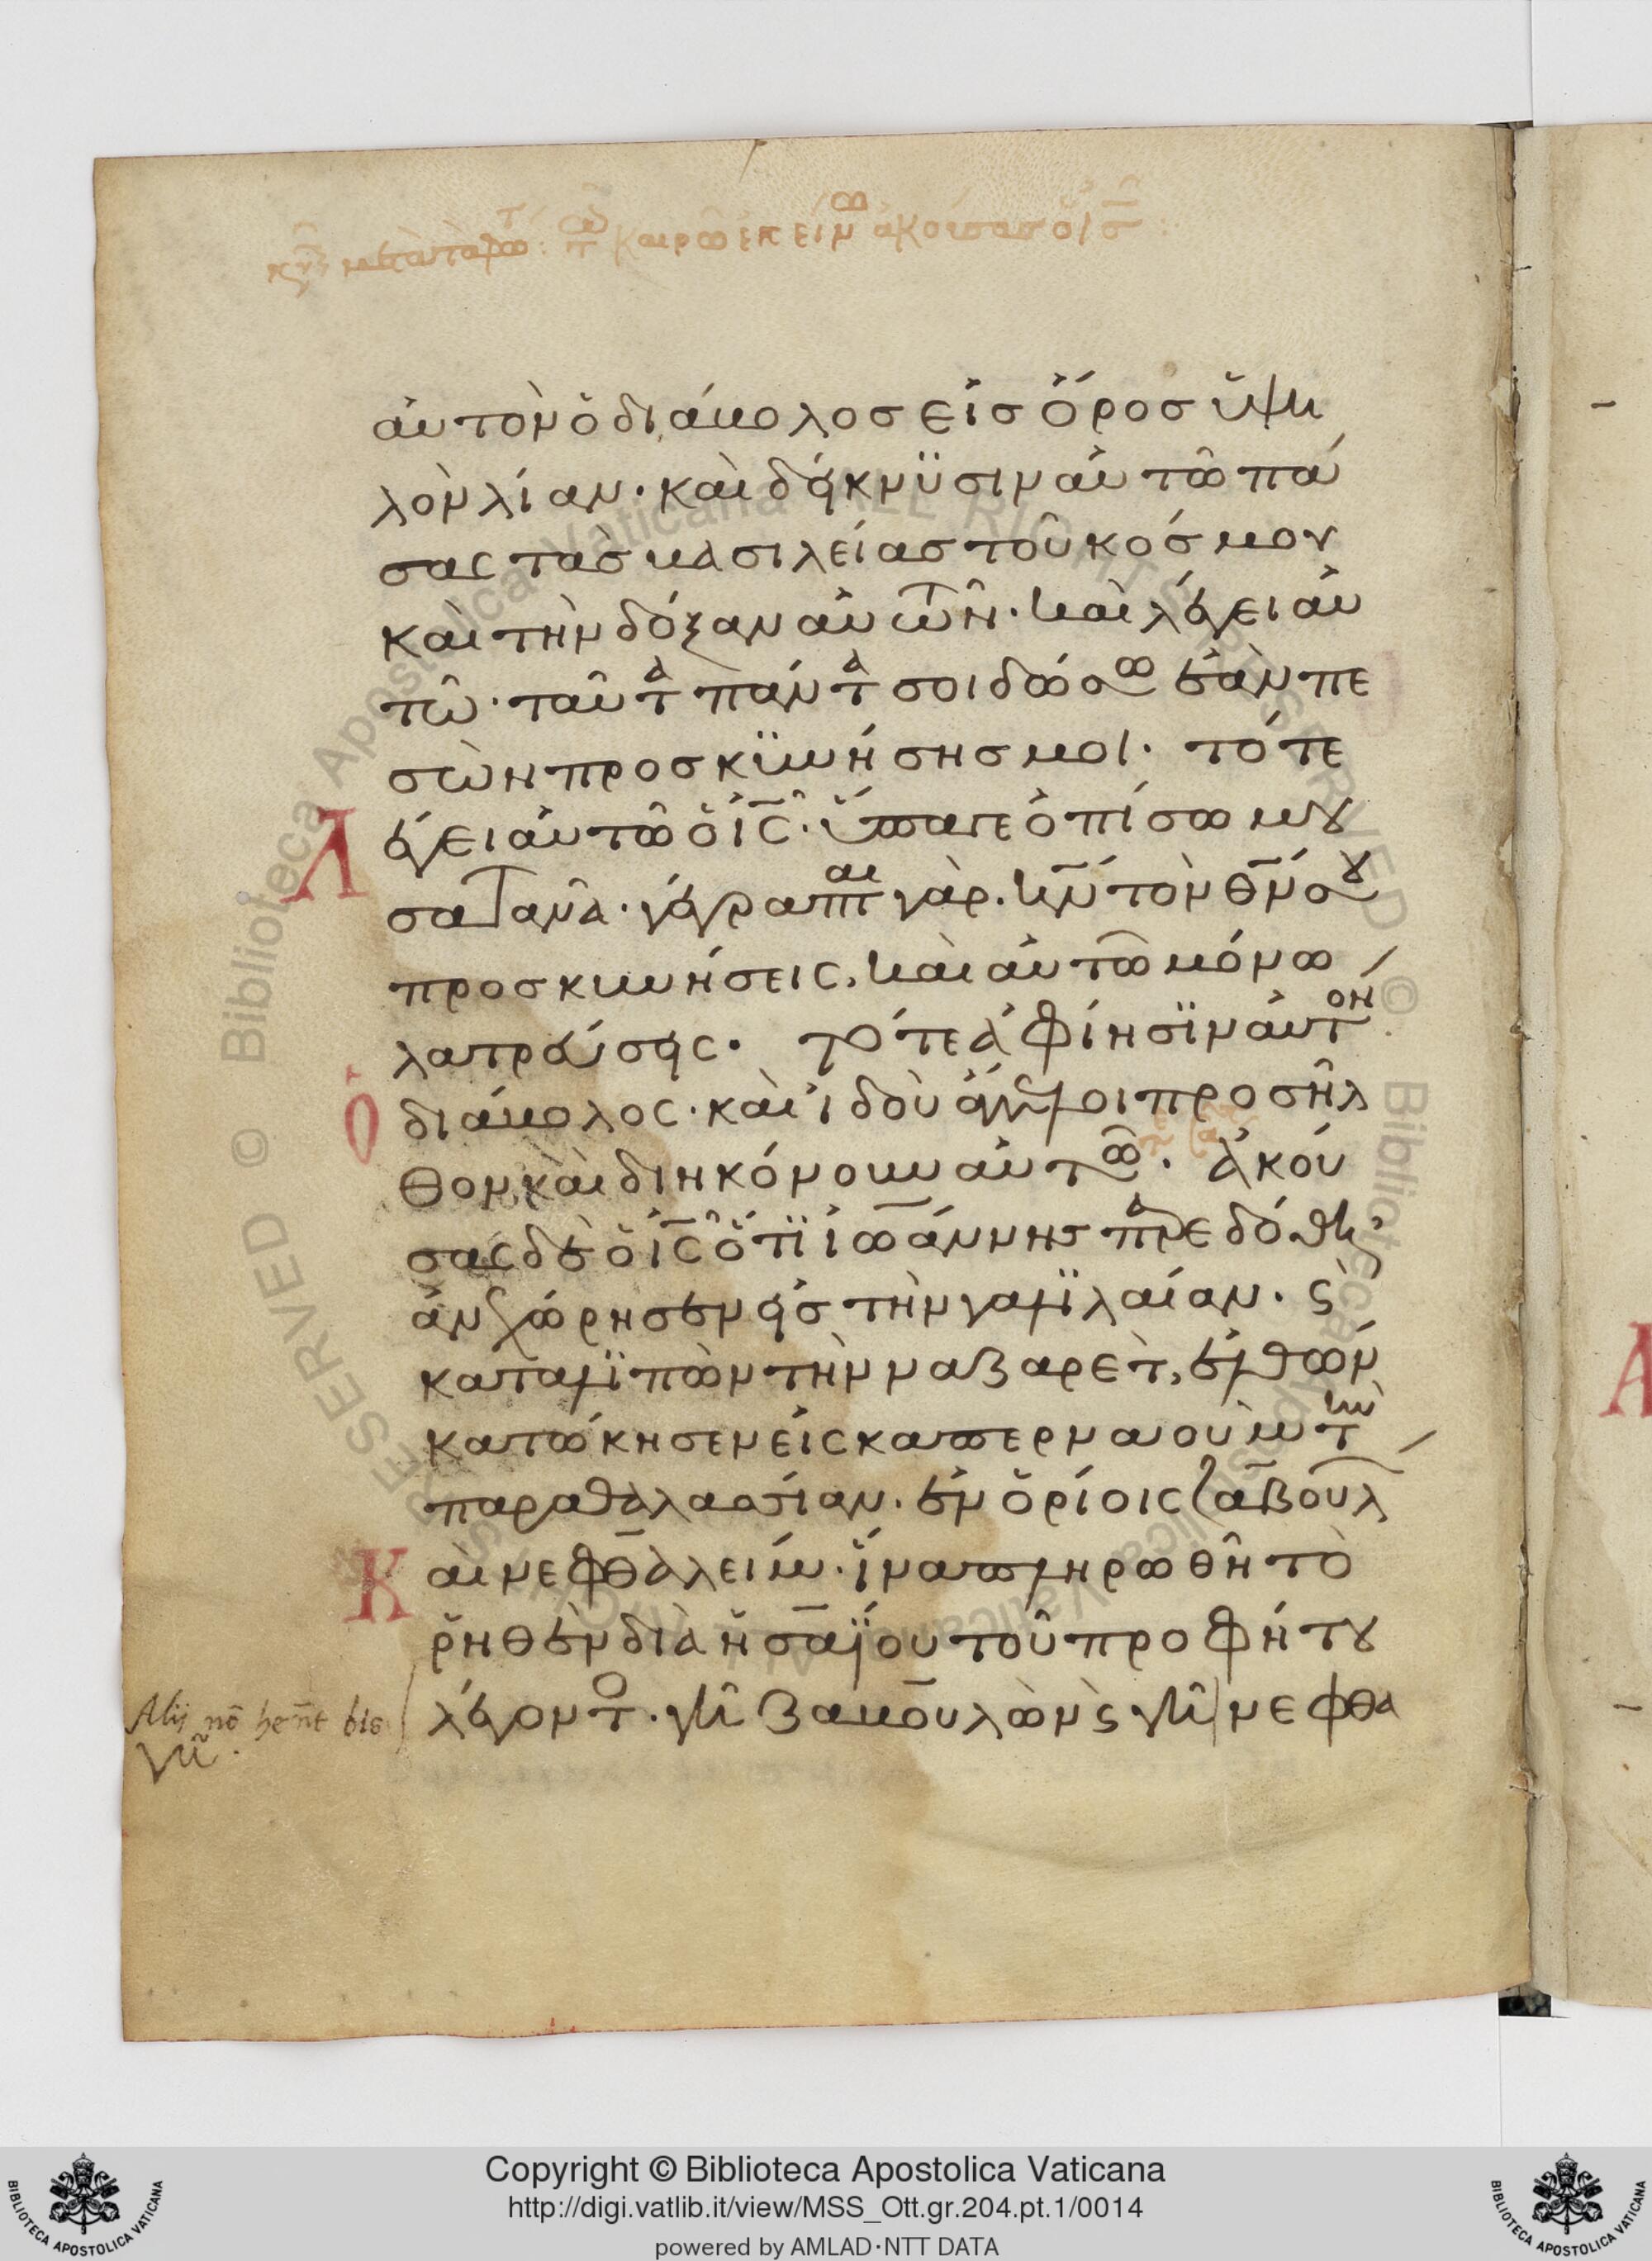 τ καιρῶ ἐκείνω ἀκούσας ὁ ις
ἀυτὸν ὁ διάβολος εἰς ὄρος ὑψη
λὸν λίαν· καὶ δείκνϋσιν αὐτῶ πά
σας τὰς βασιλείας τοῦ κόσμου
καὶ τὴν δόξαν αὐτῶν· καὶ λέγει αὐ
τῶ· ταῦτα πάντα σοι δώσω ἐὰν πε
σὼν προσκϋνήσης μοι· τότε
Λέγει αὐτῶ ὁ ις· ὕπαγε ὀπίσω μου
σατανᾶ· γέγραπται γάρ· κν τὸν θν σου
προσκυνήσεις, καὶ αὐτῶ μόνω
λατρεύσεις· τότε ἀφίησϊν αὐτον
ὁ διάβολος· καὶ ἰδοὺ ἄγγελοι προσῆλ
θον καὶ διηκόνουν αὐτῶ· ἀκού
σας δὲ ὁ ις ὅτϊ ἰωάννης παρεδόθη,
ἀνεχώρησεν εἰς τὴν γαλϊλαίαν· ϛ
καταλϊπὼν τὴν ναζαρὲτ, ἐλθὼν
κατώκησεν εἰς καπερναοὺμ την
παραθαλασσίαν· ἐν ὁρίοις ζαβουλ
Και νεφθαλείμ· ἵνα πληρωθῆ τὸ
ῥηθὲν διὰ ἡσαΐου τοῦ προφήτου
λέγοντο· γῆ ζαβουλὼν ϛ γῆ νεφθα
Alij nō hēnt bis
γῆ.
Copyright © Biblioteca Apostolica Vaticana
http://digi.vatlib.it/view/MSS_Ott.gr.204.pt.1/0014
powered by AMLAD·NTT DATA